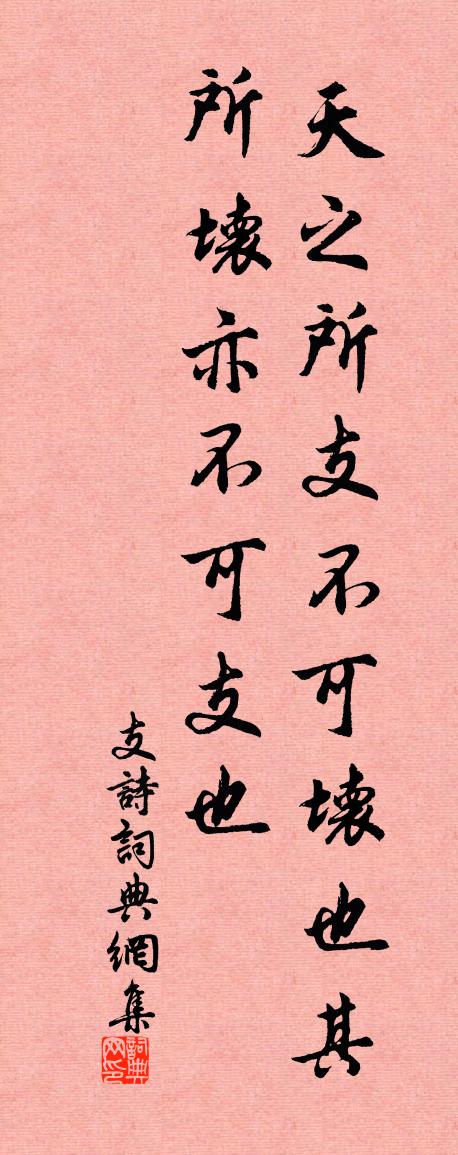 天之所支不可壞也其
所壞亦不可支也
支詩詞典網集
詞典网印